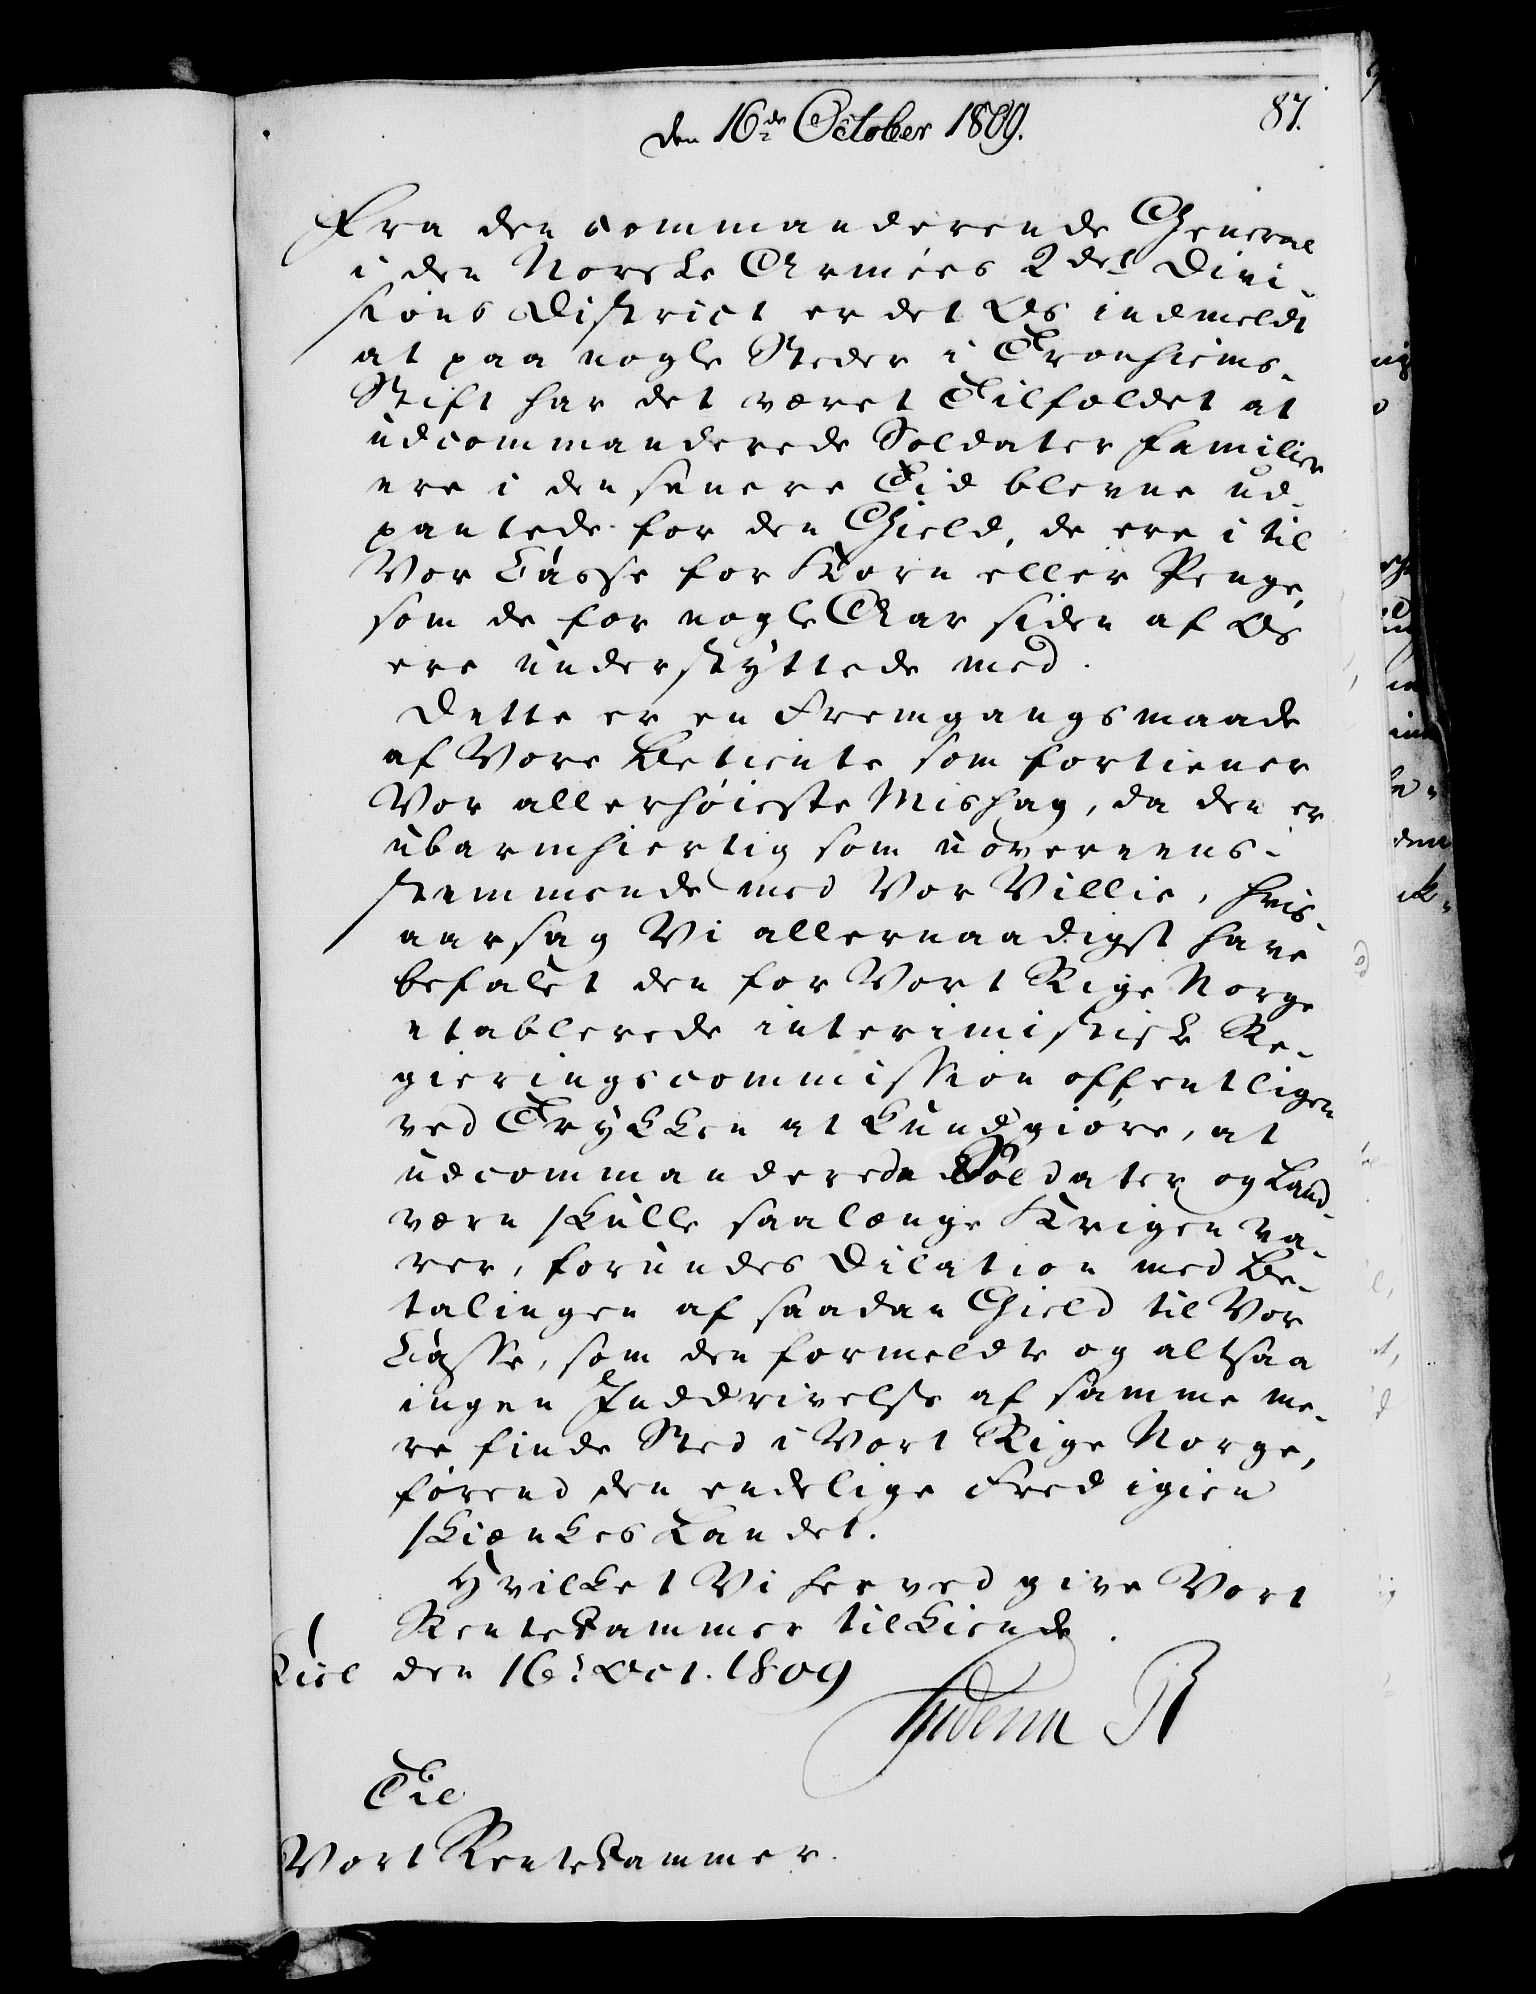 den 16de October 1809.
87.
Fra den commanderende General
i den Norske Armées 2det Divi-
sions District er det Os indmeldt
at paa nogle Steder i Tronhiems-
Stift har det været Tilfældet at
udcommanderede Soldater Familier
ere i den senere Tid blevne ud-
pantede for den Gield, de ere i til
Vor Casse for Korn eller Penge,
som de for nogle Aar siden af Os
ere understyttede med.
Dette er en Fremgangsmaade
af Vore Betiente som fortiener
Vor allerhöieste Mishag, da den er
ubarmhiertig som uovereens-
stemmende med Vor Villie, hvis-
aarsag Vi allernaadigst have
befalet den for Vort Rige Norge
etablerede interimistisk Re-
gieringscommission offentligen
ved Trykken at kundgiöre, at
udcommanderede Soldater og Land-
værn skulle saalænge Krigen va-
rer, forundes Dilation med Be-
talingen af saadan Gield til Vor
Casse, som den formeldte og altsaa
ingen Inddrivelse af samme me-
re finde Sted i Vort Rige Norge,
förend den endelige Fred igien
skienkes Landet.
Hvilket Vi herved give Vort
Rentekammer tilkiende.
Kiel den 16 Oct. 1809
Friderich R
Til
Vort Rentekammer.